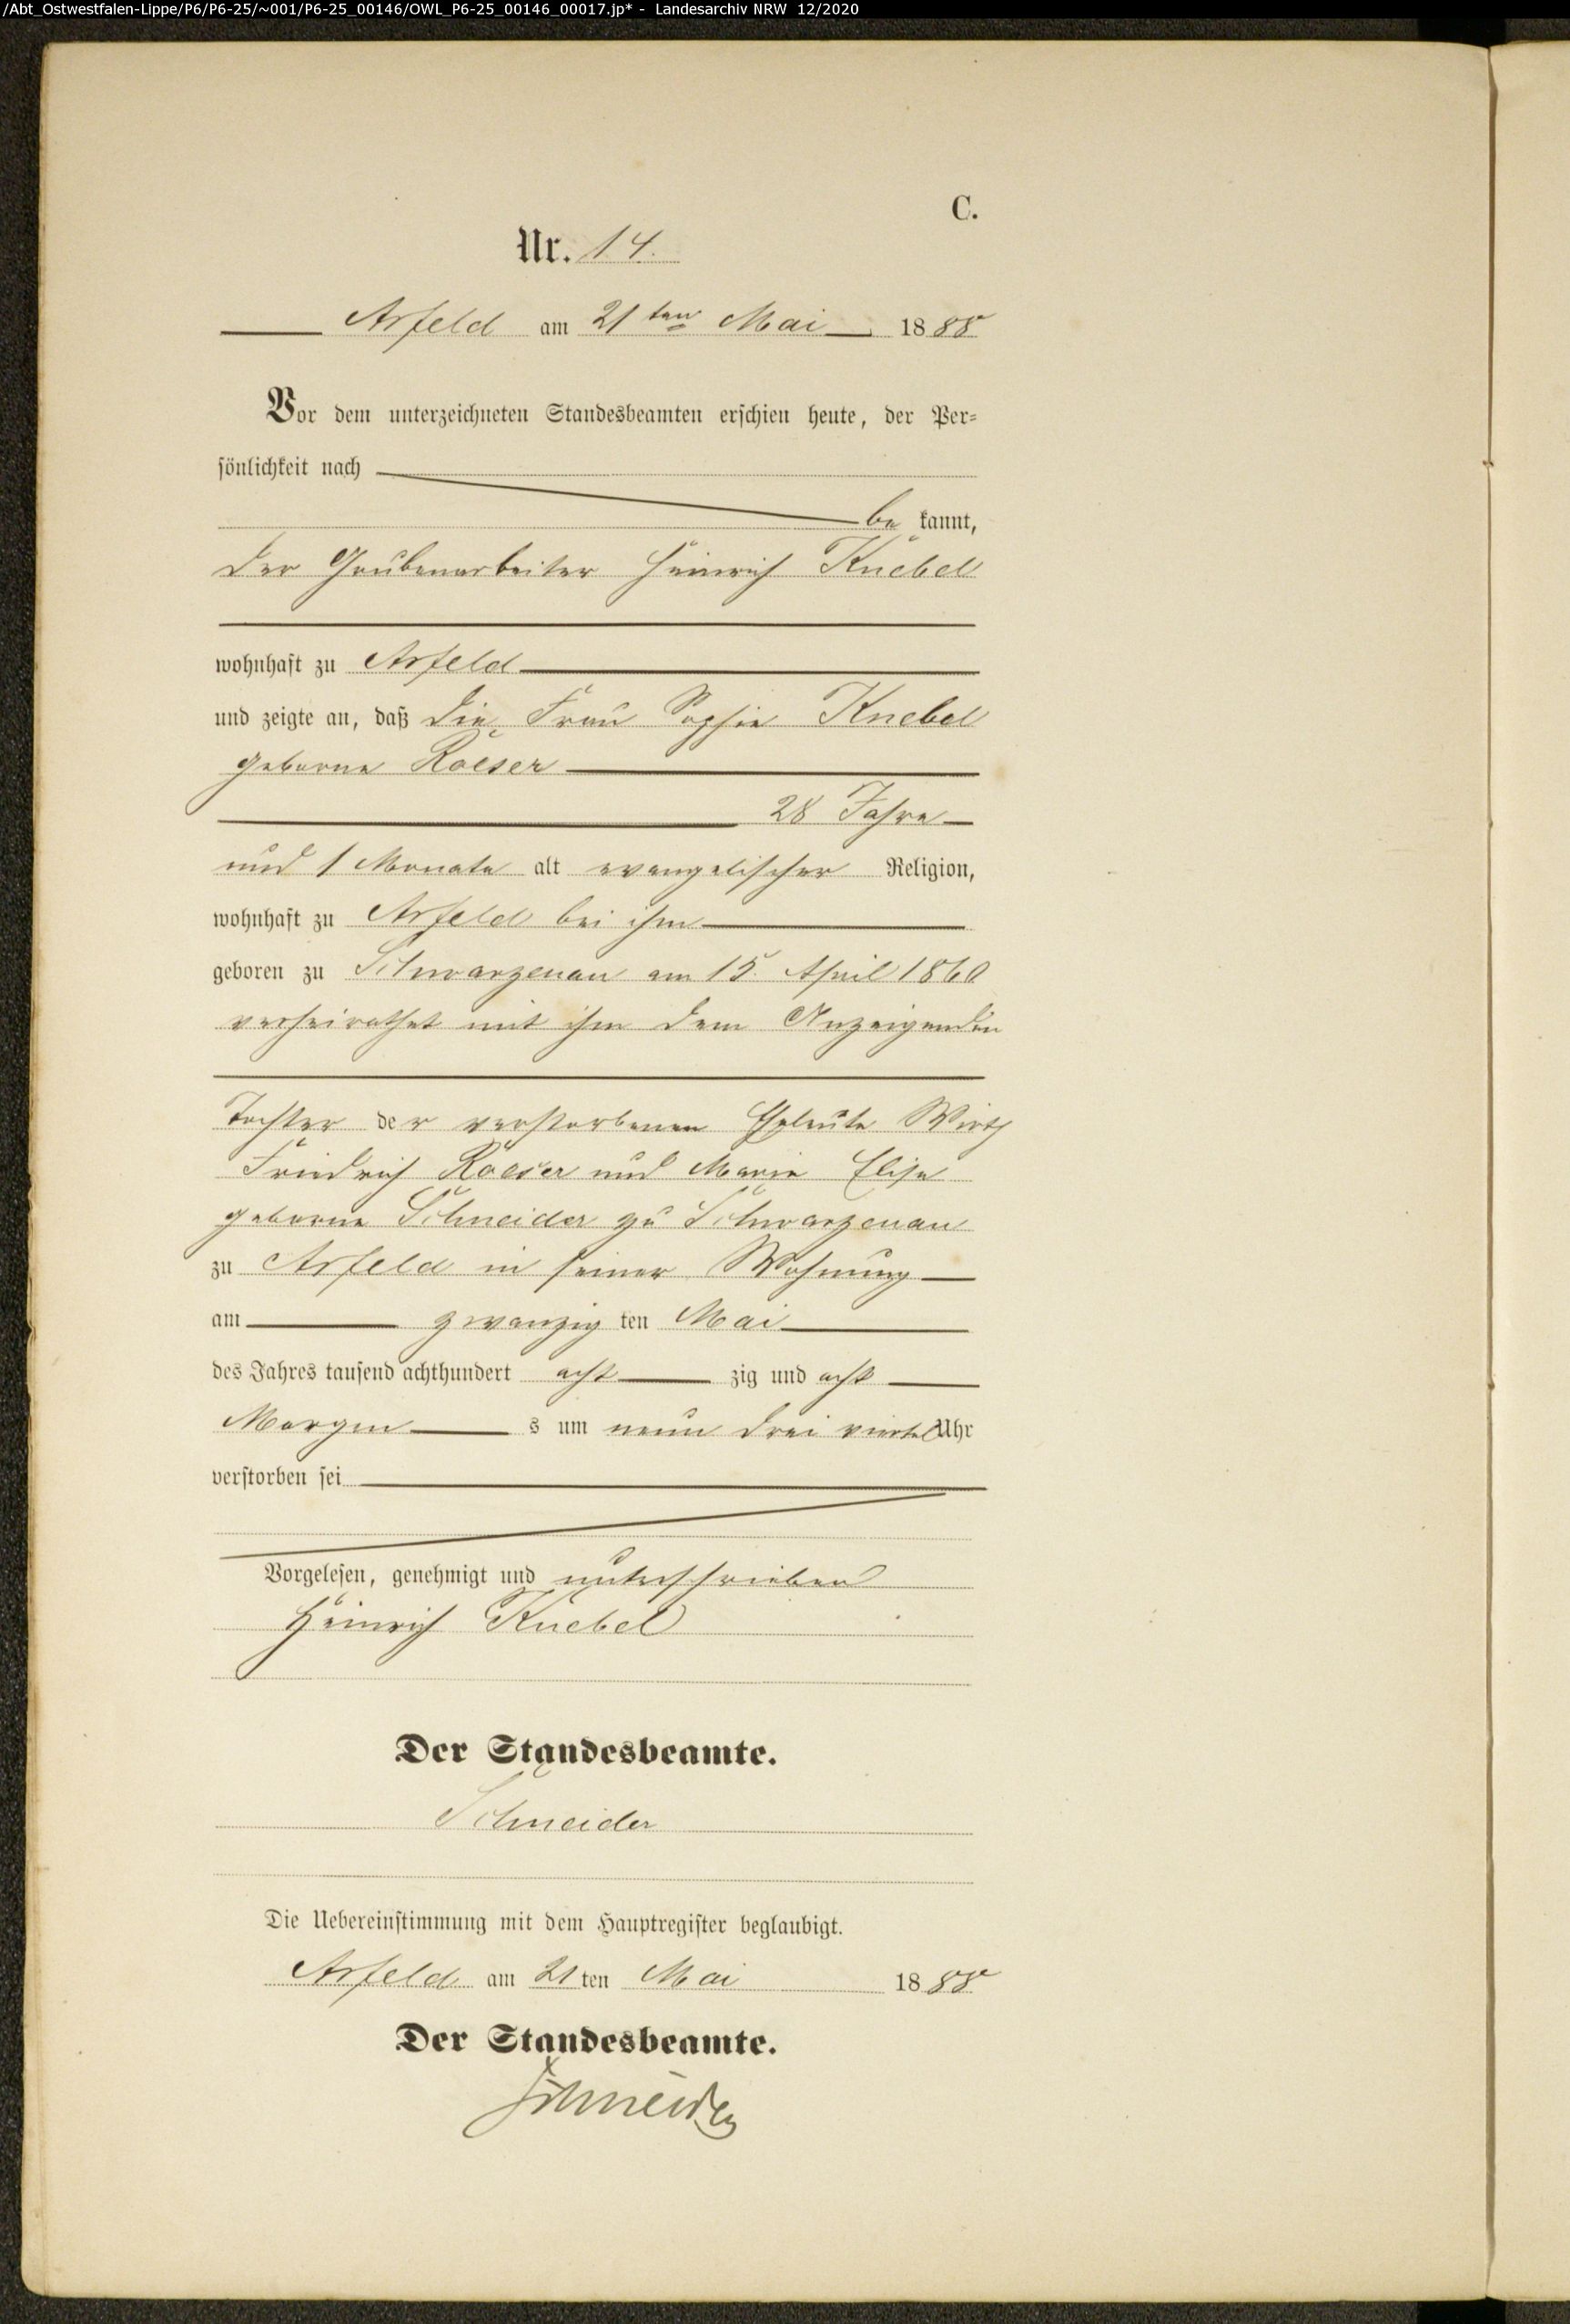 /Abt_Ostwestfalen-Lippe/P6/P6-25/~001/P6-25_00146/OWL_P6-25_00146_00017.jp* - Landesarchiv NRW 12/2020
C.
Nr. 14.
Arfeld am 21ten Mai 1888
Vor dem unterzeichneten Standesbeamten erschien heute, der Per-
sönlichkeit nach
be kannt,
der Grubenarbeiter Heinrich Knebel
wohnhaft zu Arfeld
und zeigte an, daß die Frau Sophie Knebel
geborne Roeser
28 Jahre
und 1 Monate alt evangelischer Religion,
wohnhaft zu Arfeld bei ihm
geboren zu Schwarzenau am 15. April 1860
verheirathet mit ihm dem Anzeigenden
Tochter der verstorbenen Eheleute Wirth
Friedrich Roeser und Marie Elise
geborne Schneider zu Schwarzenau
zu Arfeld in seiner Wohnung
am zwanzig ten Mai
des Jahres tausend achthundert acht zig und acht
Morgen s um neun drei viertel Uhr
verstorben sei
Vorgelesen, genehmigt und unterschrieben
Heinrich Knebel
Der Standesbeamte.
Schneider
Die Uebereinstimmung mit dem Hauptregister beglaubigt.
Arfeld am 21 ten Mai 1888
Der Standesbeamte.
Schneider